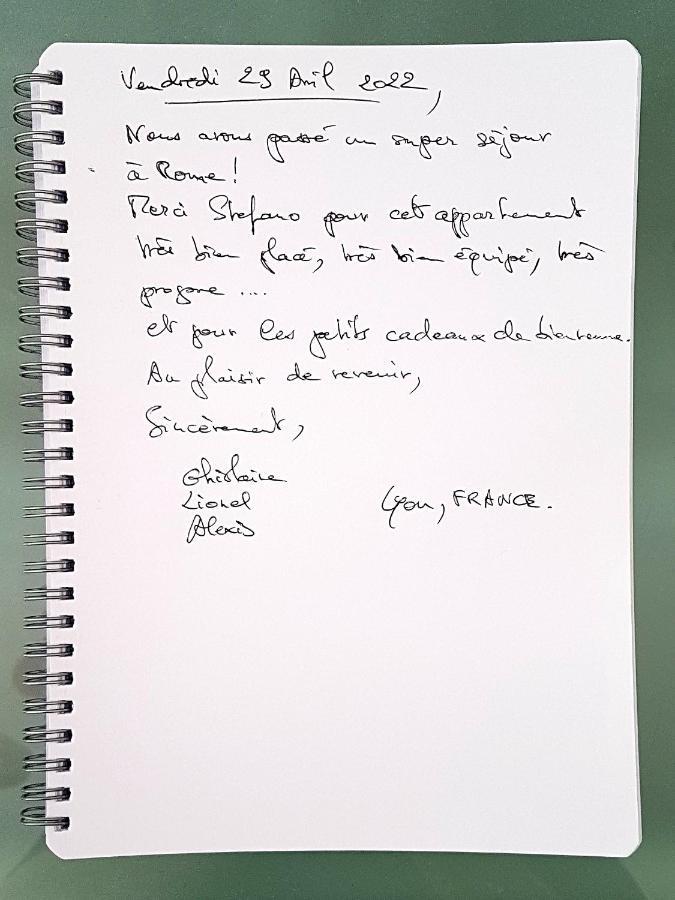 Vendredi 29 Avril 2022,
Nous avons passé un super séjour
à Rome !
Merci Stefano pour cet appartement
très bien placé, très bien équipé, très
propre ....
et pour les petits cadeaux de bienvenue.
Au plaisir de revenir,
Sincèrement,
Ghislaine
Lionel
Alexis
Lyon, FRANCE.